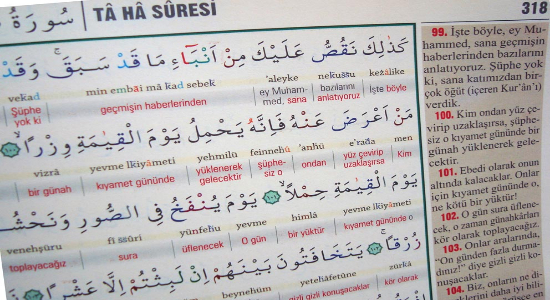 سورة
TÂ HÂ SÛRESİ
318
كَذٰلِكَ نَقُصُّ عَلَيْكَ مِنْ اَنْبَٓاءِ مَا قَدْ سَبَقَۚ وَقَدْ
kezâlike nekussu 'aleyke min embâi mâ kad sebek vekad
İşte böyle bazılarını anlatıyoruz ey Muhammed, sana geçmişin haberlerinden Şüphe yok ki
مَنْ اَعْرَضَ عَنْهُ فَاِنَّهُ يَحْمِلُ يَوْمَ الْقِيٰمَةِ وِزْرًاۙ
men e'rada 'anhü feinnehû yehmilü yevme lkiyâmeti vizrâ
Kim yüz çevirip uzaklaşırsa ondan şüphesiz o yüklenerek gelecektir kıyamet gününde bir günah
يَوْمَ الْقِيٰمَةِ حِمْلًاۙ يَوْمَ يُنْفَخُ فِي الصُّورِ وَنَحْشُ
yevme lkiyâmeti himlâ yevme yünfehu fî ssûri venehşüru
kıyamet gününde o bir yüktür O gün üflenecek sura toplayacağız
زُرْقًاۚ يَتَخَافَتُونَ بَيْنَهُمْ اِنْ لَبِثْتُمْ اِلَّا عَشْرًا
zurkâ yetehâfetûne beynehüm
kör olarak gizli gizli konuşacaklar
99. İşte böyle, ey Mu-
hammed, sana geçmişin
haberlerinden bazılarını
anlatıyoruz. Şüphe yok
ki, sana katımızdan bir-
çok öğüt (içeren Kur'ân'ı)
verdik.
100. Kim ondan yüz çe-
virip uzaklaşırsa, şüphe-
siz o kıyamet gününde bir
günah yüklenerek gele-
cektir.
101. Ebedî olarak onun
altında kalacaklar. Onlar
için kıyamet gününde o,
ne kötü bir yüktür!
102. O gün sura üflene-
cek, o zaman günahkârları
kör olarak toplayacağız.
103. Onlar aralarında,
"On günden fazla durma-
dınız!" diye gizli gizli ko-
nuşacaklar.
104. Biz, onların ne di-